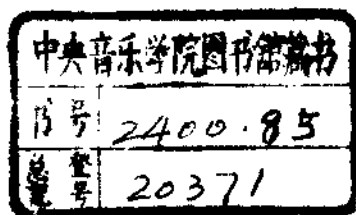 中央音乐学院图书馆藏书
书号 2400·85
总登号 20371